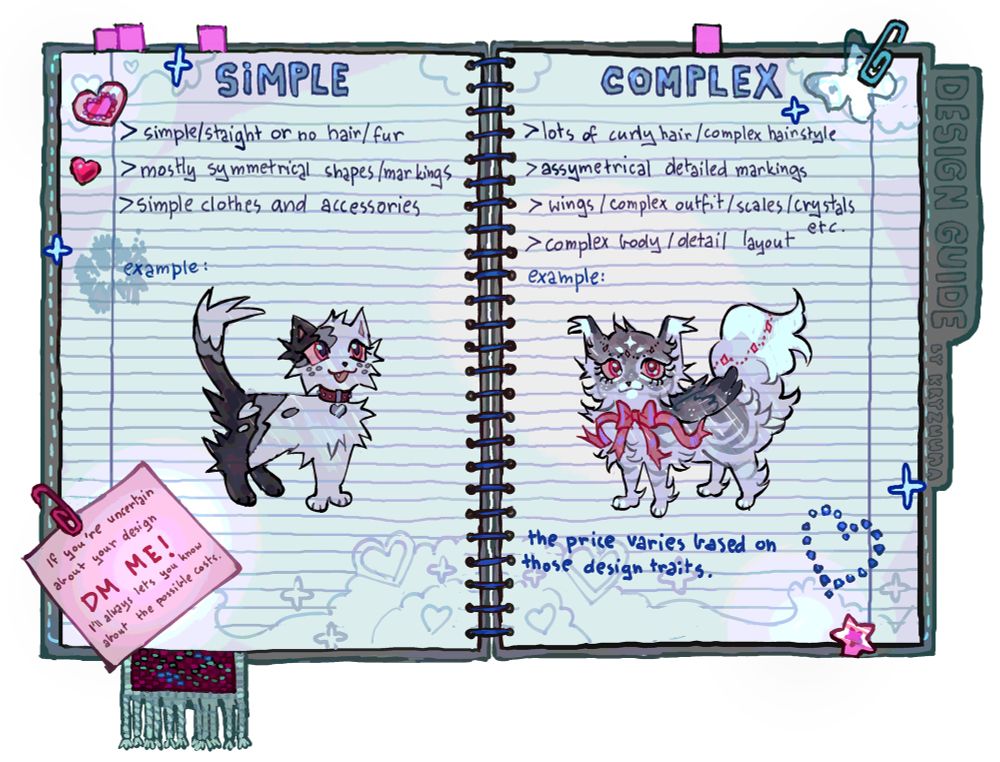 SiMPLE
>simple/staight or no hair/fur
>mostly symmetrical shapes/markings
>simple clothes and accessories
example:
If you're uncertain
about your design
DM ME!
I'll always lets you know
about the possible costs.
COMPLEX
>lots of curly hair/complex hairstyle
>assymetrical detailed markings
>wings/complex outfit/scales/crystals
etc.
>complex body/detail layout
example:
the price varies based on
those design traits.
DESIGN GUIDE